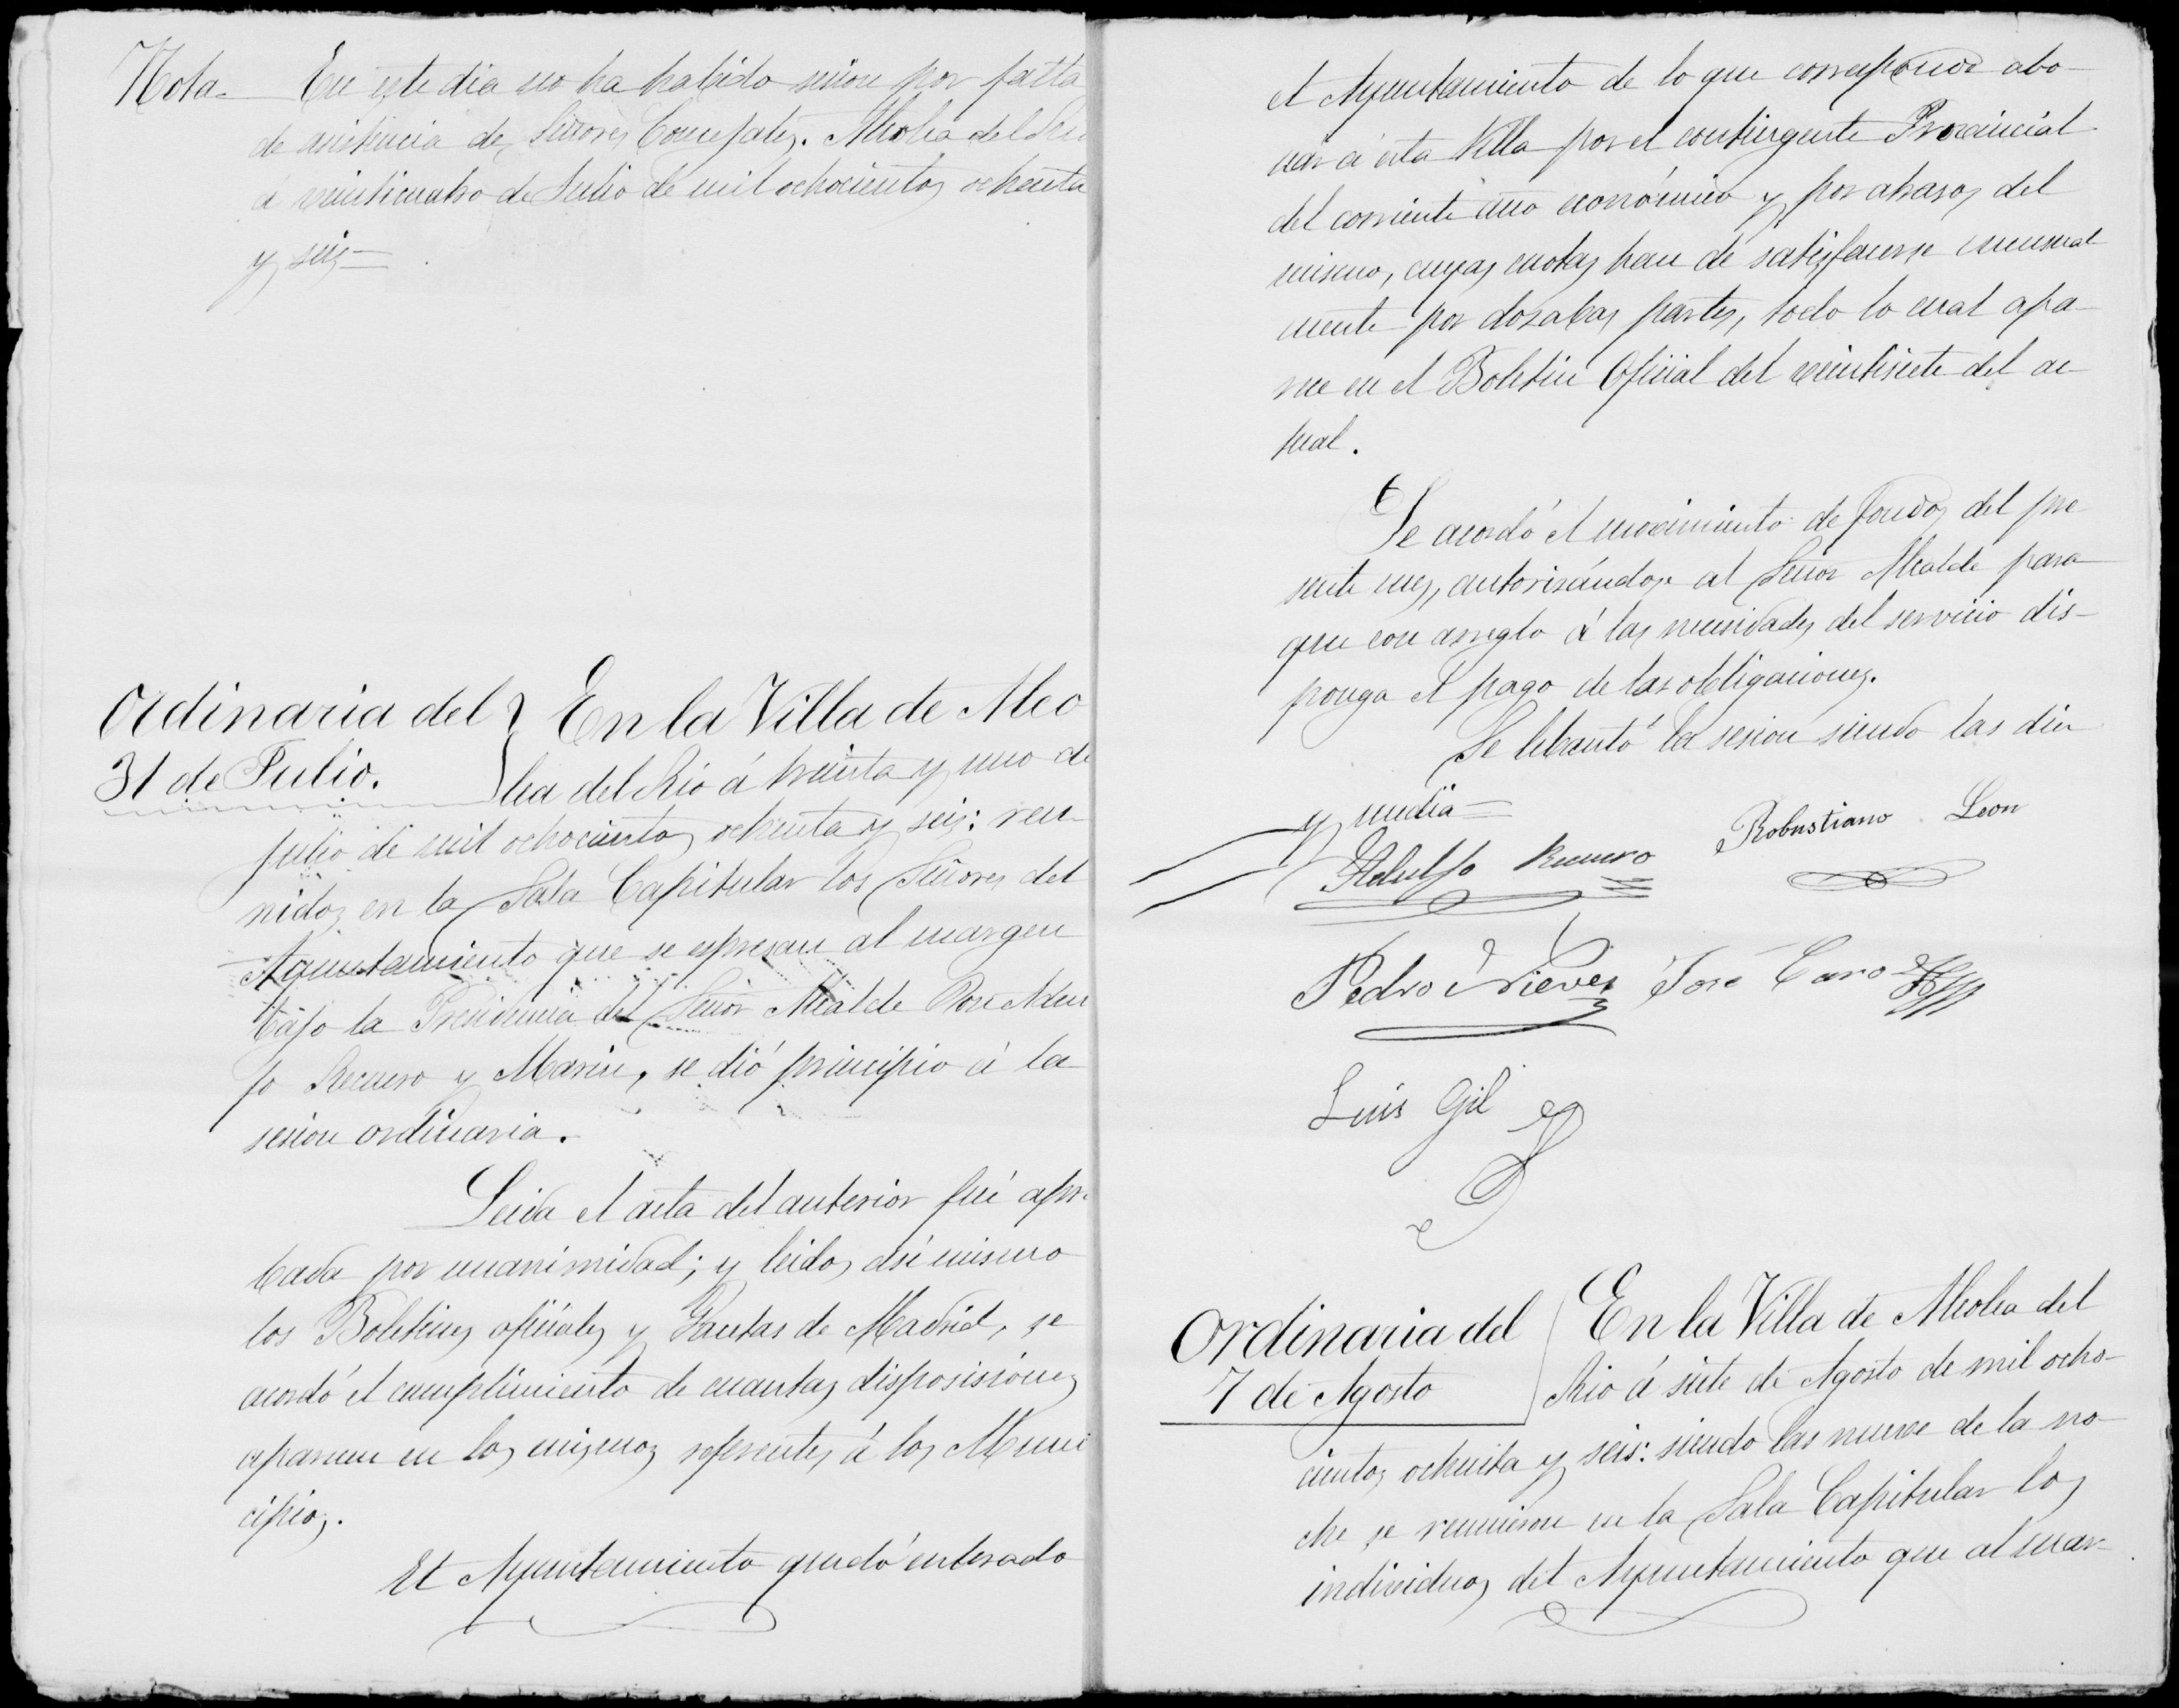 Nota. En este dia no ha habido sesion por falta
de asistencia de Señores Concejales. Alcolea del Rio
á veinticuatro de Julio de mil ochocientos ochenta
y seis=
Ordinaria del
31 de Julio.
En la Villa de Alco
lea del Rio á treinta y uno de
Julio de mil ochocientos ochenta y seis: reu
nidos en la Sala Capitular los Señores del
Ayuntamiento que se espresan al margen
bajo la Presidencia del Señor Alcalde Don Adul
fo Recuero y Marin, se dió principio á la
sesion ordinaria.
Leida el acta del anterior fué apro
bada por unanimidad; y leidos asi mismo
los Boletines oficiales y Gacetas de Madrid, se
acordó el cumplimiento de cuantas disposisiones
aparecen en los mismos referentes á los Muni
cipios.
El Ayuntamiento quedó enterado
el Ayuntamiento de lo que corresponde abo-
nar á esta Villa por el contingente Provincial
del corriente año económico y por atrasos del
mismo, cuyas cuotas han de satisfacerse mensual
mente por dozabas partes, todo lo cual apa-
rece en el Boletin Oficial del veintisiete del ac
tual.
Se acordó el movimiento de fondos del pre
sente mes, autorisándose al Señor Alcalde para
que con arreglo á las necesidades del servicio dis-
ponga el pago de las obligaciones.
Se lebantó la sesion siendo las diez
y media=
Adulfo Recuero Robustiano Leon
Pedro Nieves José Caro
Luis Gil
Ordinaria del
7 de Agosto
En la Villa de Alcolea del
Rio á siete de Agosto de mil ocho-
cientos ochenta y seis: siendo las nueve de la no-
che se reunieron en la Sala Capitular los
individuos del Ayuntamiento que al mar-